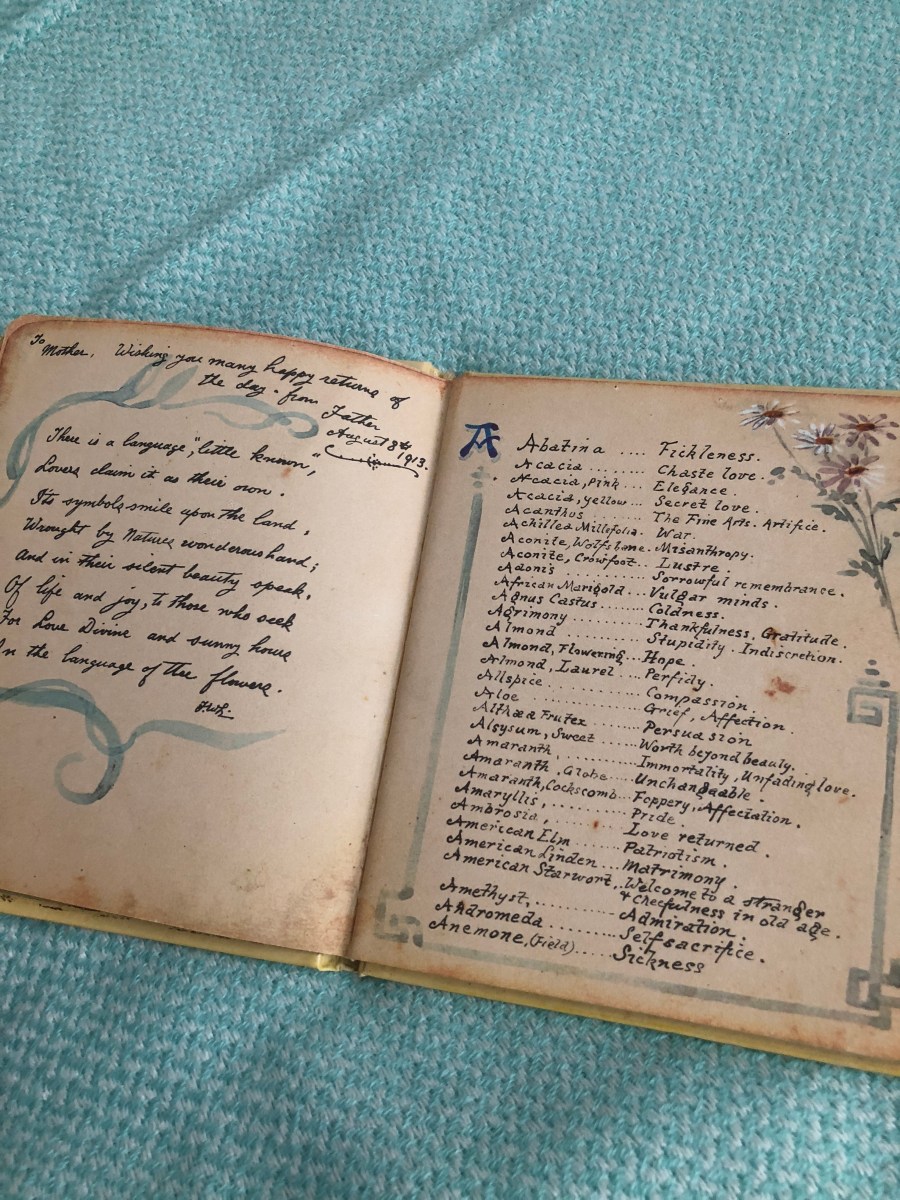 To
Mother. Wishing you many happy returns of
the day - from
Father
August 8th
1913.
There is a language, "little known,"
Lovers claim it as their own.
Its symbols smile upon the land,
Wrought by Natures wonderous hand;
And in their silent beauty speak,
Of life and joy, to those who seek
For Love Divine and sunny hours
In the language of the flowers.
A
Abatina .... Fickleness.
Acacia ........ Chaste love.
Acacia, Pink ... Elegance.
Acacia, yellow ... Secret love.
Acanthus ........ The Fine Arts. Artifice.
Achillea Millifolia. War.
Aconite, Wolfsbane. Misanthropy.
Aconite, Crowfoot.. Lustre.
Adonis .......... Sorrowful remembrance.
African Marigold ... Vulgar minds.
Agnus Castus ....... Coldness.
Agrimony ......... Thankfulness, Gratitude.
Almond .......... Stupidity. Indiscretion.
Almond, Flowering ... Hope.
Almond, Laurel ... Perfidy.
Allspice .......... Compassion.
Aloe ............ Grief, Affection.
Althæa Frutex ...... Persuasion
Alsysum, Sweet ..... Worth beyond beauty.
Amaranth, .......... Immortality, Unfading love.
Amaranth, Globe ... Unchangable.
Amaranth, Cockscomb ... Foppery, Affectation.
Amaryllis, ......... Pride.
Ambrosia, ......... Love returned.
American Elm ..... Patriotism.
American Linden ... Matrimony.
American Starwort, .. Welcome to a stranger
& Cheefulness in old age.
Amethyst, .......... Admiration.
Andromeda ........ Self sacrifice.
Anemone, (Field) ..... Sickness